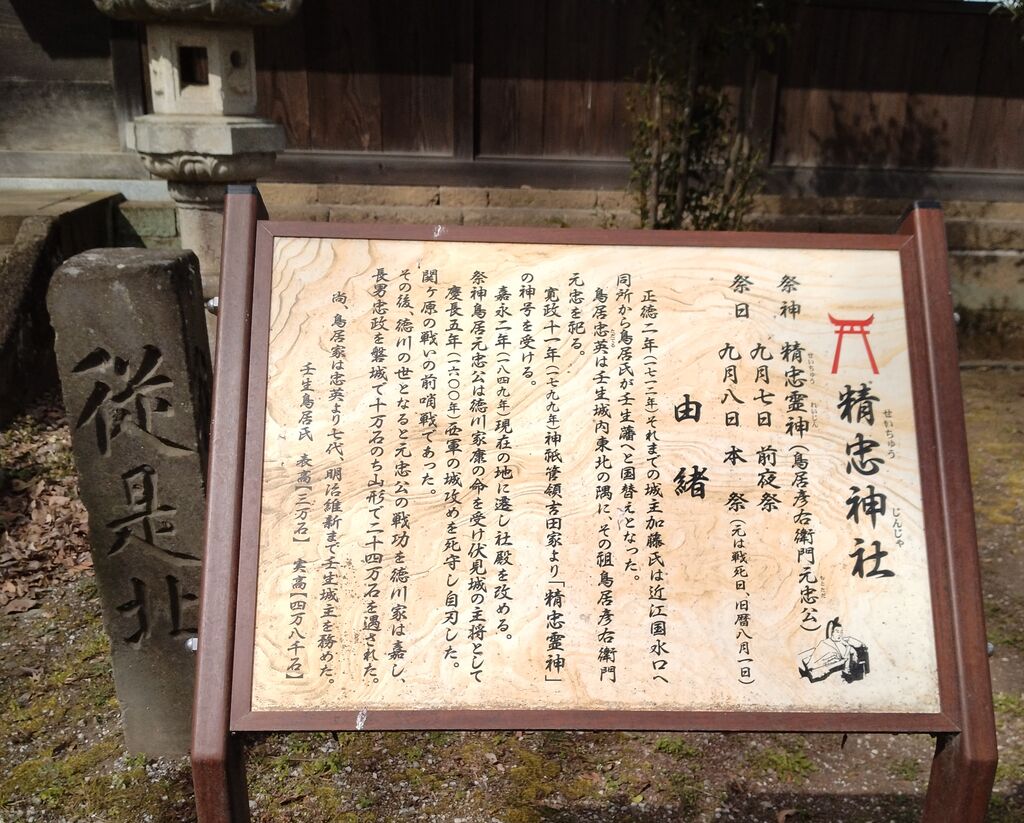 精忠神社
せいちゅう じんじゃ
祭神 精忠霊神(鳥居彦右衛門元忠公)
せいちゅう れいじん もとただ
九月七日 前夜祭
祭日 九月八日 本祭(元は戦死日、旧暦八月一日)
由緒
正徳二年(一七一二年)それまでの城主加藤氏は近江国水口へ
同所から鳥居氏が壬生藩へと国替えとなった。
鳥居忠英は壬生城内東北の隅に、その祖鳥居彦右衛門
ただてる
元忠を祀る。
寛政十一年(一七九九年)神祇管領吉田家より「精忠霊神」
の神号を受ける。
嘉永二年(一八四九年)現在の地に遷し社殿を改める。
祭神鳥居元忠公は徳川家康の命を受け伏見城の主将として
慶長五年(一六〇〇年)西軍の城攻めを死守し自刃した。
関ヶ原の戦いの前哨戦であった。
その後、徳川の世となると元忠公の戦功を徳川家は嘉し、
長男忠政を磐城で十万石のち山形で二十四万石を遇された。
尚、鳥居家は忠英より七代、明治維新まで壬生城主を務めた。
壬生鳥居氏 表高【三万石】 実高【四万八千石】
従是北